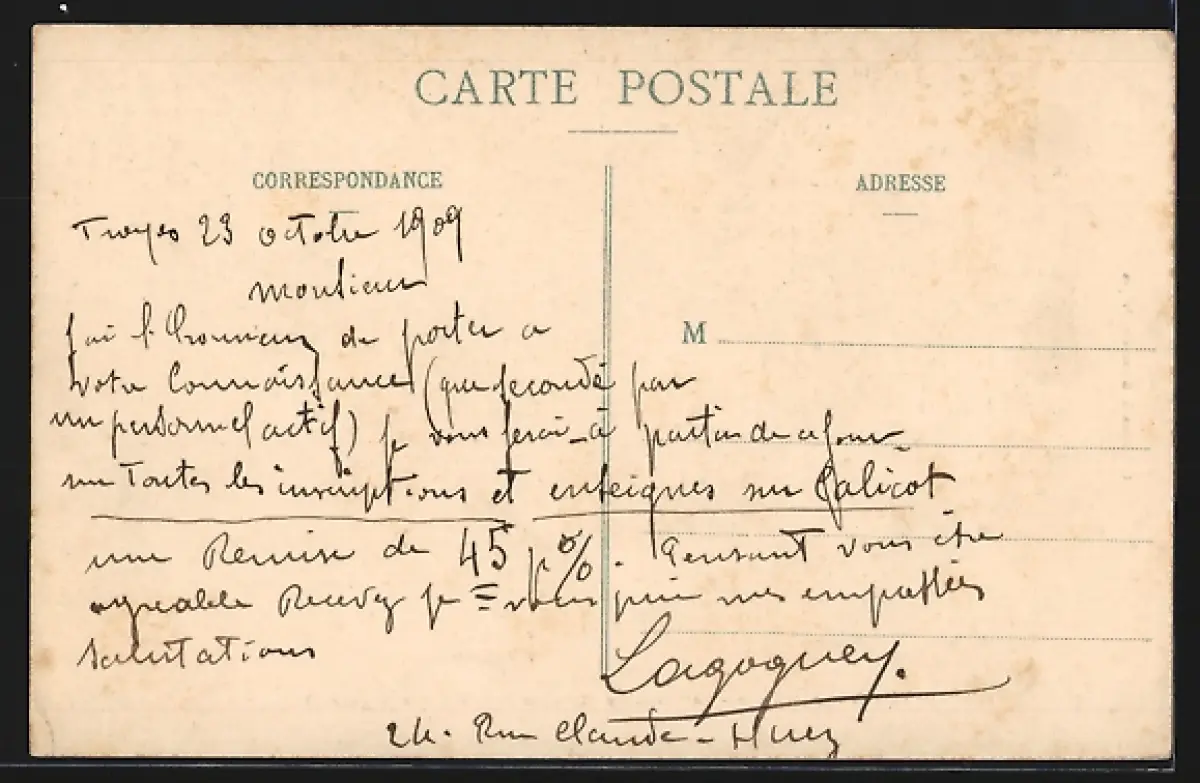 CARTE POSTALE
CORRESPONDANCE
ADRESSE
Troyes 23 octobre 1909
Monsieur
J'ai l'honneur de porter a
votre connaissance (que secondé par
un personnel actif) je vous ferai à partir de ce jour
sur toutes les inscriptions et enseignes sur Calicot
une Remise de 45 p%. Pensant vous être
agréable Recevez je vous prie mes empressées
salutations
Lagoguey.
24. Rue Claude-Huez
M